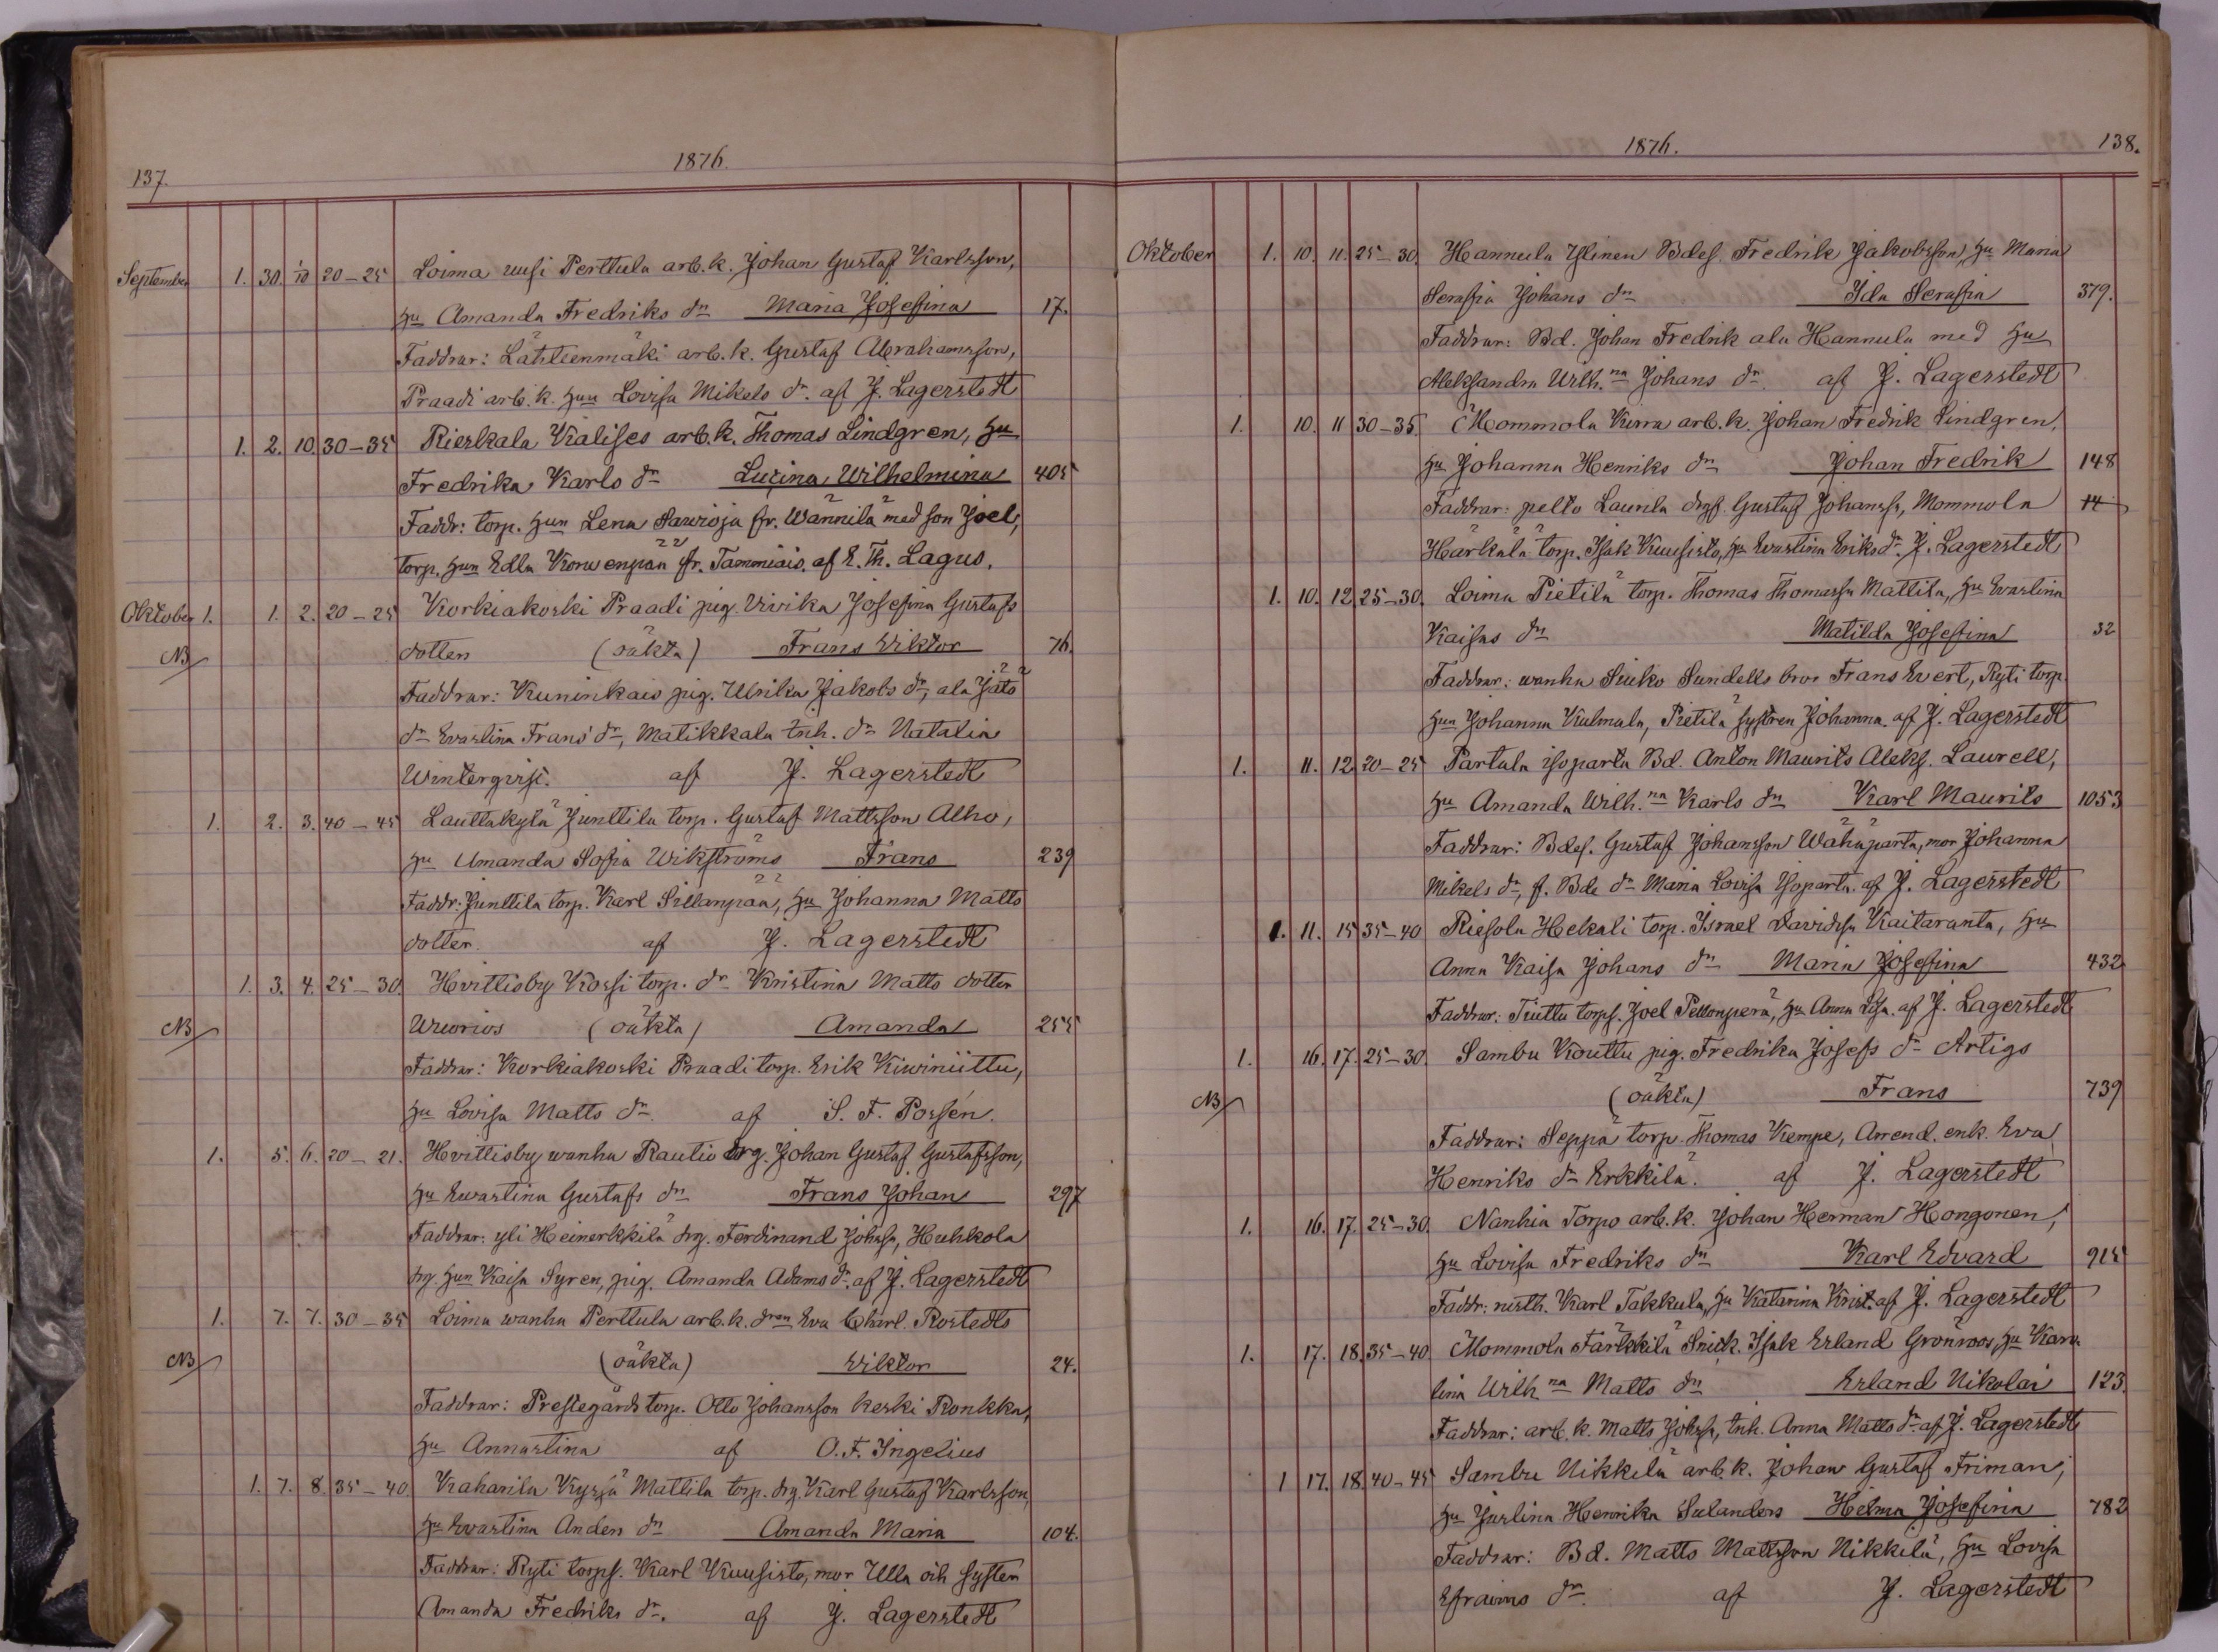 137.
1876.
September 1. 30. 1/10 20–25 Loima uusi Perttula arb.k. Johan Gustaf Karlsson,
hu Amanda Fredriks dr Maria Josefina 17.
Faddrar: Lähteenmäki arb.k. Gustaf Abrahamsson,
Praadi arb.k. hun Lovisa Mikels dr. af J. Lagerstedt
1. 2. 10. 30–35 Rieskala Kalises arb.k. Thomas Lindgren, hu
Fredrika Karls dr Lucina Wilhelmina 405
Faddr: torp. hun Lena Sawioja fr. Wännilä med son Joel,
torp. hun Edla Korwenpää fr. Tammiais. af E. Th. Lagus.
Oktober 1. 1. 2. 20–25 Korkiakoski Praadi pig. Vivika Josefina Gustafs
NB dotter (oäkta) Frans Viktor 76.
Faddrar: Kuninkais pig. Ulrika Jakobs dr, ala Jäts
dr Evastina Frans dr, Matikkala tnh. dr Natalia
Wintergvist. af J. Lagerstedt
1. 2. 3. 40–45 Lauttakylä Junttila torp. Gustaf Mattsson Alho,
hu Amanda Sofia Wikströms Frans 239
Faddr: Junttila torp. Karl Sillanpää, hu Johanna Matts
dotter. af J. Lagerstedt
1. 3. 4. 25–30. Hvittisby Kossi torp. dr Kristina Matts dotter
NB Wuorios (oäkta) Amanda 255
Faddrar: Korkiakoski Praadi torp. Erik Kiwiniittu,
hu Lovisa Matts dr. af S. F. Porsén.
1. 5. 6. 20–21. Hvittisby wanha Rautio drg. Johan Gustaf Gustafsson,
hu Evastina Gustafs dr Frans Johan 297
Faddrar: yli Heinerkkilä drg. Ferdinand Johssn, Huhkola
drg. hun Kaisa Syren, pig. Amanda Adams dr. af J. Lagerstedt
1. 7. 7. 30–35 Loima wanha Perttula arb.k. dran Eva Charl. Rostedts
NB (oäkta) Viktor 24.
Faddrar: Prestegårds torp. Otto Johansson keski Ronkka,
hu Annastina af O. F. Ingelius
1. 7. 8. 35–40. Kaharila Kyssä Mattila torp. drg. Karl Gustaf Karlsson,
hu Evastina Anders dr Amanda Maria 104.
Faddrar: Ryti torps. Karl Kuusisto, mor Ulla och syster
Amanda Fredriks dr. af J. Lagerstedt
1876.
138.
Oktober 1. 10. 11. 25–30. Hannula Ylinen Bdes. Fredrik Jakobsson, hu Maria
Serafia Johans dr Ida Serafia 379.
Faddrar: Bd. Johan Fredrik ala Hannula med hu
Aleksandra Wilh.na Johans dr. af J. Lagerstedt
1. 10. 11 30–35. Mommola Kurra arb.k. Johan Fredrik Lindgren,
hu Johanna Henriks dr Johan Fredrik 148
Faddrar: pelto Laurila drgs. Gustaf Johanss, Mommola 14
Härkälä torp. Isak Kuusisto, hu Evastina Eriks dr. J. Lagerstedt
1. 10. 12. 25–30. Loima Pietilä torp. Thomas Thomassn Mattila, hu Evastina
Kaisas dr Matilda Josefina 32
Faddrar: wanha Siuko Sundells bror Frans Evert, Ryti torp.
hun Johanna Kulmala, Pietilä systren Johanna. af J. Lagerstedt
1. 11. 12. 20–25 Partala isoparta Bd. Anton Maurits Aleks. Laurell,
hu Amanda Wilh.na Karls dr Karl Maurits 1053
Faddrar: Bdes. Gustaf Johansson Wähäparta, mor Johanna
Mikels dr, f. Bde dr Maria Lovisa Isoparta. af J. Lagerstedt
1. 11. 15 35–40 Riesola Hekali torp. Israel Davidssn Kaitaranta, hu
Anna Kaisa Johans dr Maria Josefina 432
Faddrar: Tiuttu torps. Joel Pellonperä, hu Anna Lisa. af J. Lagerstedt
1. 16. 17. 25–30. Sambu Kouttu pig. Fredrika Josefs dr Artigs
NB (oäkta) Frans 739
Faddrar: Seppä torp. Thomas Kempe, Arrend. enk. Eva
Henriks dr Erkkilä. af J. Lagerstedt
1. 16. 17. 25–30. Nanhia Torpo arb.k. Johan Herman Hongonen,
hu Lovisa Fredriks dr Karl Edvard 915
Faddr: nisth. Karl Takkula, hu Katarina Krist. af J. Lagerstedt
1. 17. 18. 35–40 Mommola Färkkilä Snick. Isak Erland Grönroos, hu Karo
lina Wilh.na Matts dr Erland Nikolai 123
Faddrar: arb.k. Matts Johssn, tnh. Anna Matts dr. af J. Lagerstedt
1 17. 18. 40–45 Sambu Nikkilä arb.k. Johan Gustaf Friman,
hu Justina Henrika Sulanders Hilma Josefina 782
Faddrar: Bd. Matts Mattsson Nikkilä, hu Lovisa
Efraims dr. af J. Lagerstedt